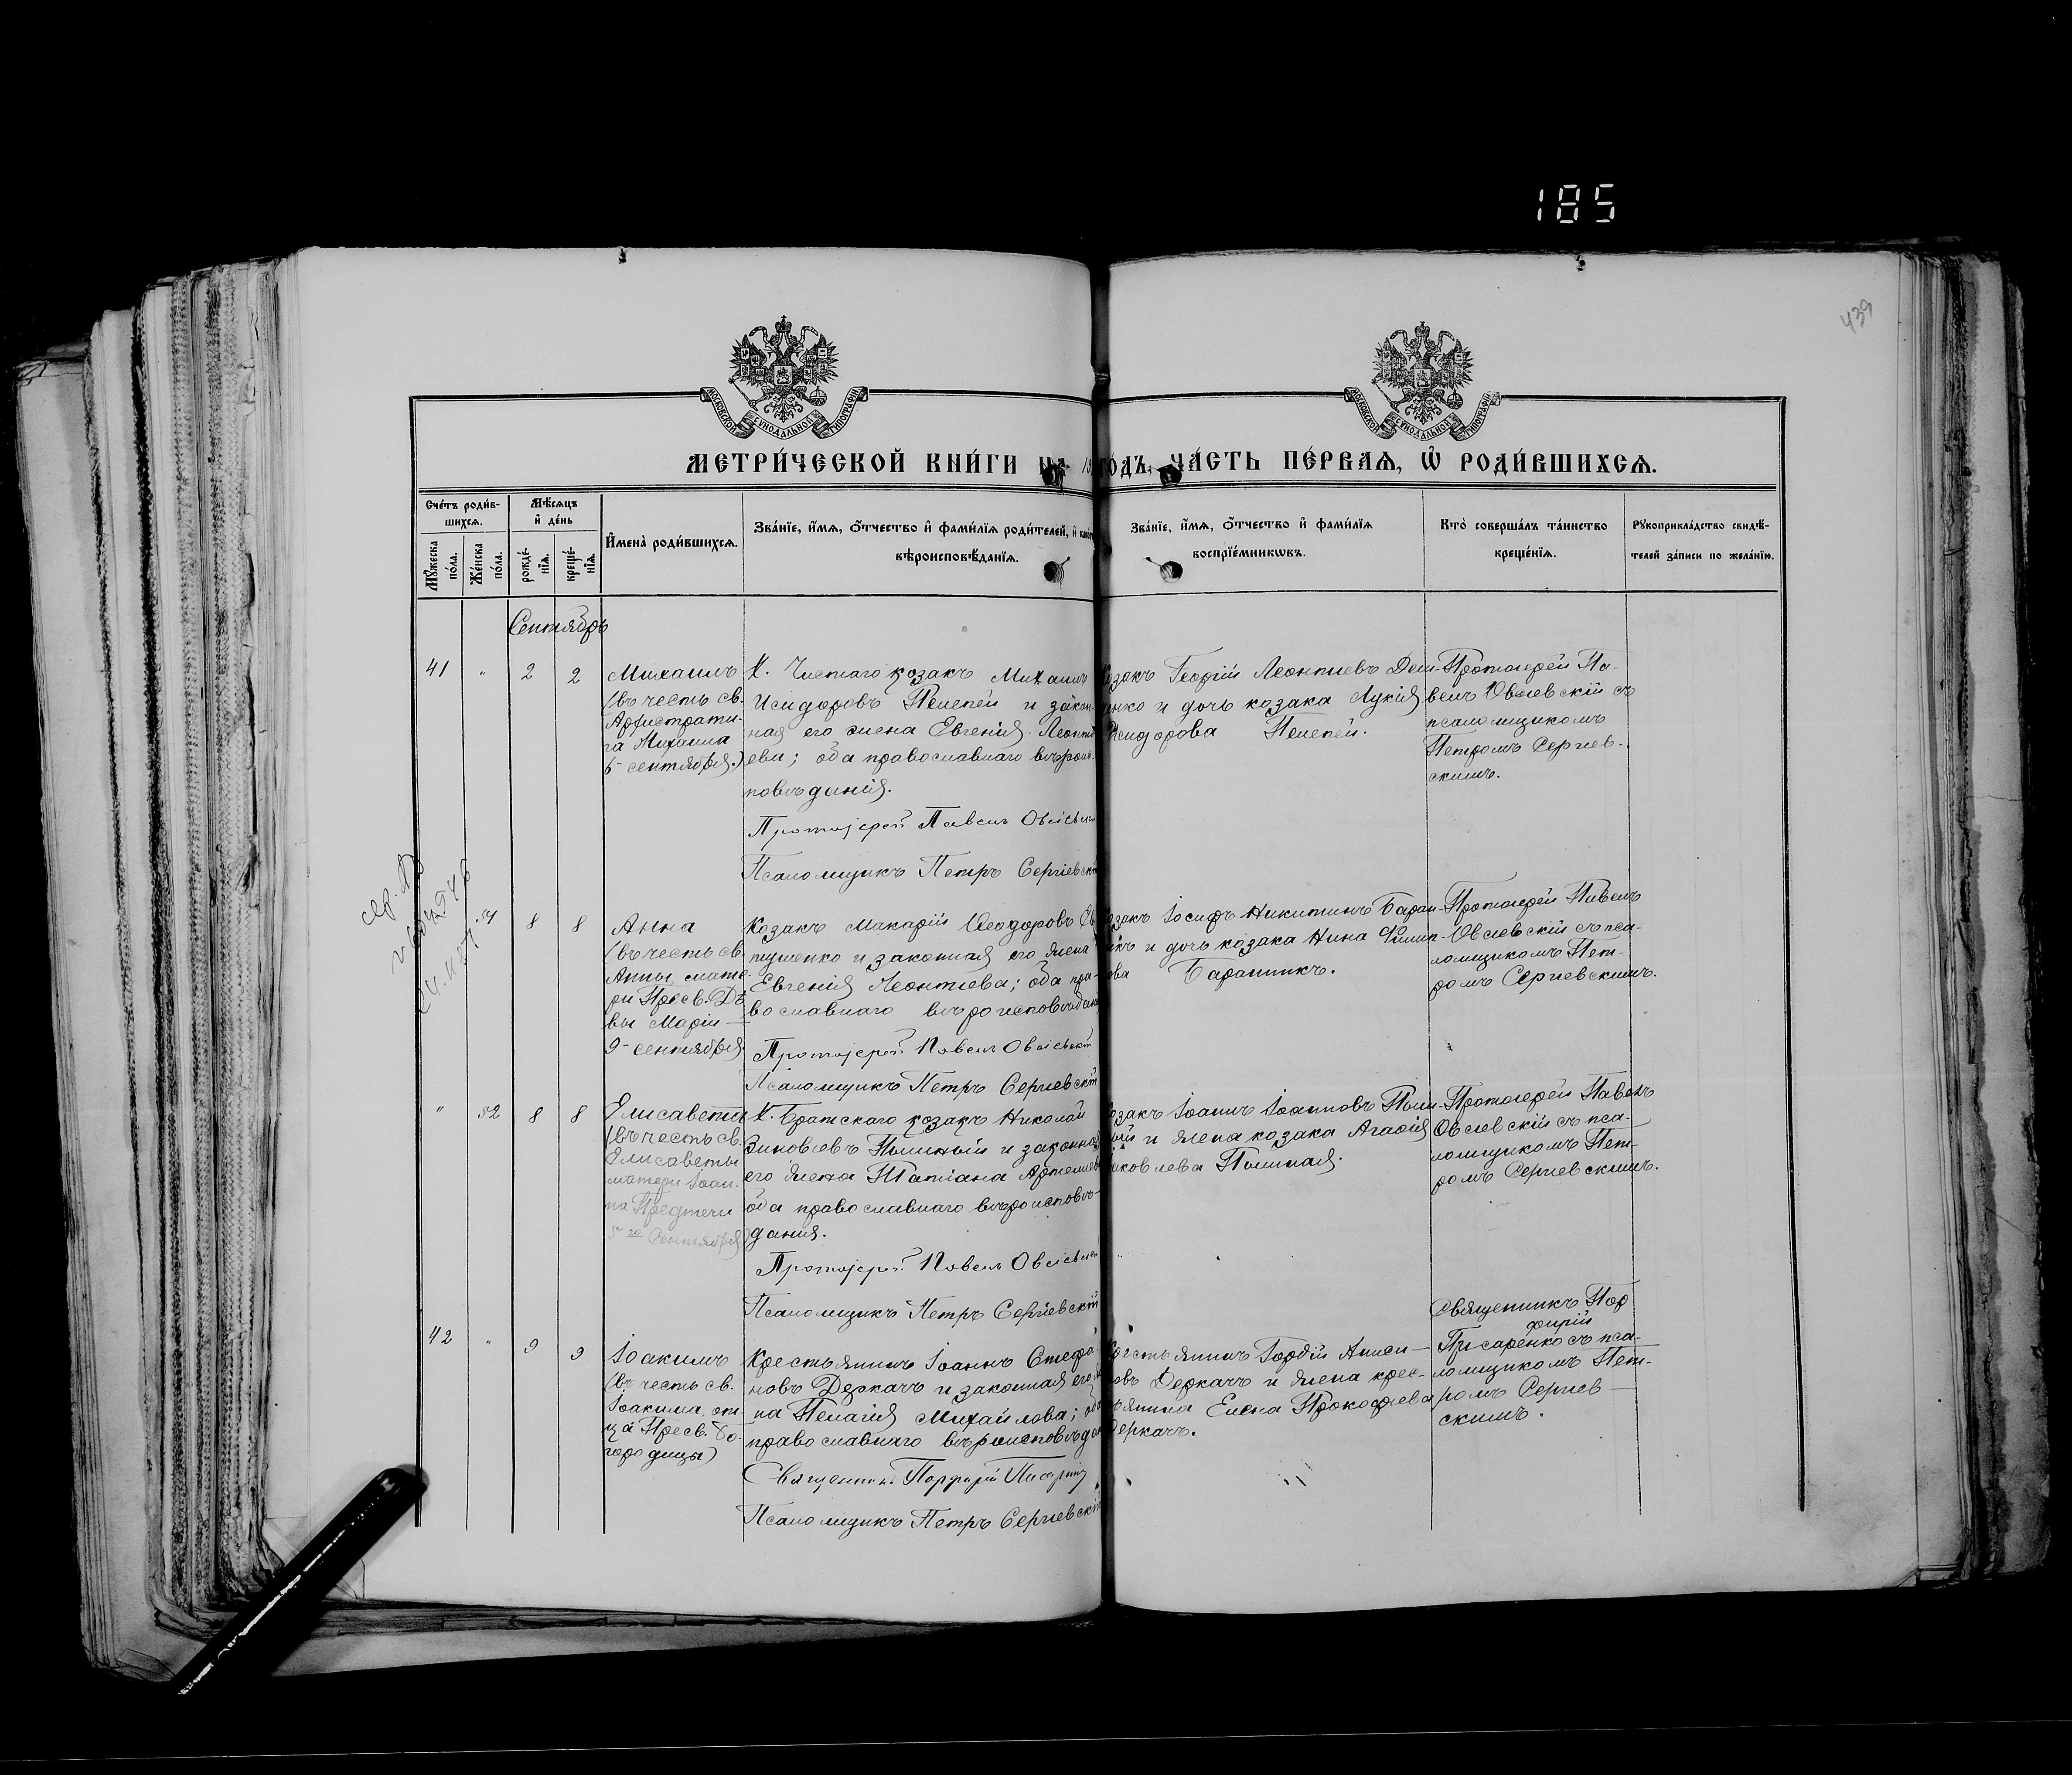 185
439
МОСКОВСКОЙ СѴНОДАЛЬНОЙ ТИПОГРАФІИ
МОСКОВСКОЙ СѴНОДАЛЬНОЙ ТИПОГРАФІИ
МЕТРИ́ЧЕСКОЙ КНИ́ГИ НА 19 ГО́ДЪ, ЧА́СТЬ ПЕ́РВАѦ, Ѡ҆ РОДИ́ВШИХСѦ.
Сче́тъ роди́в-
шихсѧ.
Мꙋ́жеска по́ла.
Же́нска по́ла.
Мѣ́сѧцъ
и҆ де́нь
рожде́-
нїѧ.
креще́-
нїѧ.
И҆мена̀ роди́вшихсѧ.
Зва́нїе, и҆́мѧ, ѻ҆́тчество и҆ фами́лїѧ роди́телей, и҆
вѣроисповѣ́данїѧ.
Зва́нїе, и҆́мѧ, ѻ҆́тчество и҆ фами́лїѧ
воспрїе́мникѡвъ.
Кто̀ соверша́лъ та́инство
креще́нїѧ.
Рꙋкоприкла́дство свидѣ́-
телей за́писи по жела́нїю.
Сентябрь
41 " 2 2
Михаилъ
(въ честь св.
Архистрати-
га Михаила
6 сентября.)
Х. Чистаго козакъ Михаилъ
Исидоровъ Пелепей и закон-
ная его жена Евгенія Леонти
ева; оба православнаго вѣроис-
повѣданія.
Протоіерей Павелъ Овсіевскій
Псаломщикъ Петръ Сергіевскій
козакъ Георгій Леонтиевъ Деш-
енко и дочь козака Лукія
Исидорова Пелепей.
Протоіерей Па-
велъ Овсіевскій съ
псаломщикомъ
Петромъ Сергіев-
скимъ.
51 8 8
Анна
(въ честь св.
Анны, мате-
ри Пресв. Дѣ
вы Маріи —
9 сентября.
Козакъ Макарій Ѳеодоровъ
пушенко и законная его жена
Евгенія Леонтіева; оба пра-
вославнаго вѣроисповѣдан
Протоіерей Павелъ Овсіевскій
Псаломщикъ Петръ Сергіевскій
козакъ Іосифъ Никитинъ Баран-
икъ и дочь козака Нина Филип-
ова Баранникъ.
Протоіерей Павелъ
Овсіевскій съ пса-
ломщикомъ Пет-
ромъ Сергіевскимъ.
" 52 8 8
Елисавета
(въ честь св.
Елисаветы
матери Іоан-
на Предтечи
5го Сентября)
Х. Братскаго козакъ Николай
Зиновіевъ Полиный и законная
его жена Татіана Артеміев
оба православнаго вѣроисповѣ-
данія.
Протоіерей Павелъ Овсіевскій
Псаломщикъ Петръ Сергіевскій
козакъ Іоаннъ Іоанновъ
и жена козака Агафія
Яковлева
Протоіерей Павелъ
Овсіевскій съ пса-
ломщикомъ Пет-
ромъ Сергіевскимъ.
42 " 9 9
Іоакимъ
(въ честь св.
Іоакима, от-
ца Пресв. Бо-
городицы)
Крестьянинъ Іоаннъ Стефа-
новъ Деркачъ и законная его же
на Пелагія Михайлова; оба
православнаго вѣроисповѣдан
Священникъ Порфирій Писаренко
Псаломщикъ Петръ Сергіевскій
Крестьянинъ Гордій Аниси-
мовъ Деркачъ и жена крес-
тьянина Елена Прокофіева
Деркачъ.
Священникъ Пор
фирій
Писаренко съ пса-
ломщикомъ Пет-
ромъ Сергіев-
скимъ.